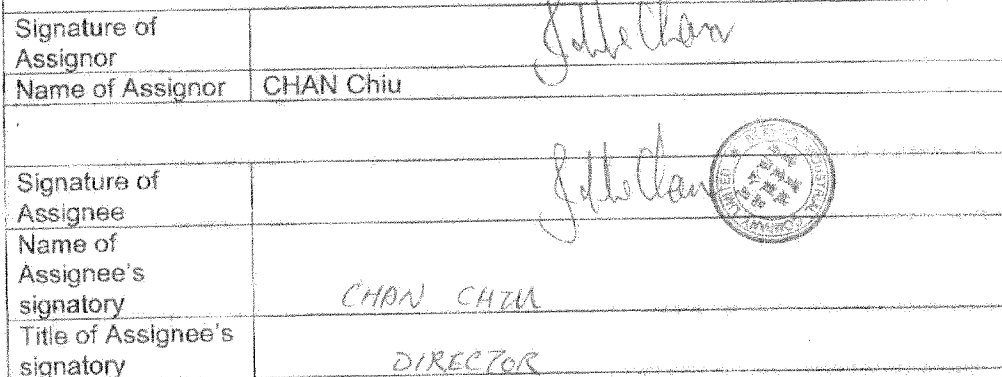 Signature of
Assignor
Name of Assignor CHAN Chiu
Signature of
Assignee
Name of
Assignee's
signatory CHAN CHIU
Title of Assignee's
signatory DIRECTOR
INDUSTRIAL COMPANY LIMITED